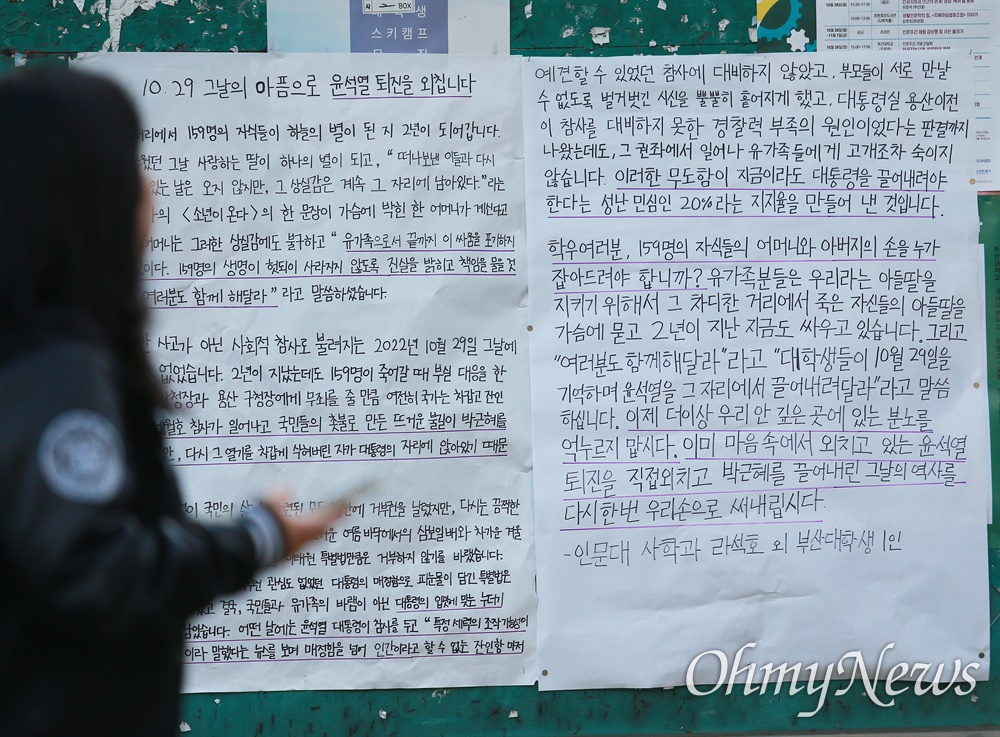 BOX
대학생
스키캠프
모집
10. 29 그날의 마픔으로 윤석열 퇴진을 외칩니다
거리에서 159명의 자식들이 하늘의 별이 된 지 2년이 되어갑니다.
웠던 그날 사랑하는 딸이 하나의 별이 되고, “ 떠나보낸 이들과 다시
있는 날은 오지 않지만, 그 상실감은 계속 그 자리에 남아있다.”라는
의 <소년이 온다>의 한 문장이 가슴에 박힌 한 어머니가 계신다고
어머니는 그러한 상실감에도 불구하고 “ 유가족으로서 끝까지 이 싸움을 포기하지
이다. 159명의 생명이 헛되이 사라지지 않도록 진실을 밝히고 책임을 물을 것
여러분도 함께 해달라 ” 라고 말씀하셨습니다.
사고가 아닌 사회적 참사로 불려지는 2022년 10월 29일 그날에
없었습니다. 2년이 지났는데도 159명이 죽어갈 때 부실 대응을 한
청장과 용산 구청장에게 무죄를 줄 만큼 여전히 국가는 차갑고 잔인
세월호 참사가 일어나고 국민들의 촛불로 만든 뜨거운 불길이 박근혜를
만, 다시 그 열기를 차갑게 식혀버린 자가 대통령의 자리에 앉아있기 때문
국민의 거부권을 날렸지만, 다시는 끔찍한
여름 바닥에서의 삼보일배와 차가운 겨울
이태원 특별법만큼은 거부하지 않기를 바랬습니다.
관심도 없었던 대통령의 매정함으로 피눈물이 담긴 특별법은
결국, 국민들과 유가족의 바램이 아닌 대통령의 입맛에 맞는 누더기
남았습니다. 어떤 날에는 윤석열 대통령이 참사를 두고 “ 특정 세력의 조작 가능성이
이라 말했다는 뉴스를 보며 매정함을 넘어 인간이라고 할 수 없는 잔인함 마저
예견할 수 있었던 참사에 대비하지 않았고, 부모들이 서로 만날
수 없도록 벌거벗긴 시신을 뿔뿔히 흩어지게 했고, 대통령실 용산이전
이 참사를 대비하지 못한 경찰력 부족의 원인이었다는 판결까지
나왔는데도, 그 권좌에서 일어나 유가족들에게 고개조차 숙이지
않습니다. 이러한 무도함이 지금이라도 대통령을 끌어내려야
한다는 성난 민심인 20%라는 지지율을 만들어 낸 것입니다.
학우여러분, 159명의 자식들의 어머니와 아버지의 손을 누가
잡아드려야 합니까? 유가족분들은 우리라는 아들딸을
지키기 위해서 그 차디찬 거리에서 죽은 자신들의 아들딸을
가슴에 묻고 2년이 지난 지금도 싸우고 있습니다. 그리고
“여러분도 함께해달라”라고 “대학생들이 10월 29일을
기억하며 윤석열을 그 자리에서 끌어내려달라”라고 말씀
하십니다. 이제 더이상 우리 안 깊은 곳에 있는 분노를
억누르지 맙시다. 이미 마음 속에서 외치고 있는 윤석열
퇴진을 직접외치고 박근혜를 끌어내린 그날의 역사를
다시한번 우리손으로 써내립시다.
-인문대 사학과 라석호 외 부산대학생 1인
OhmyNews